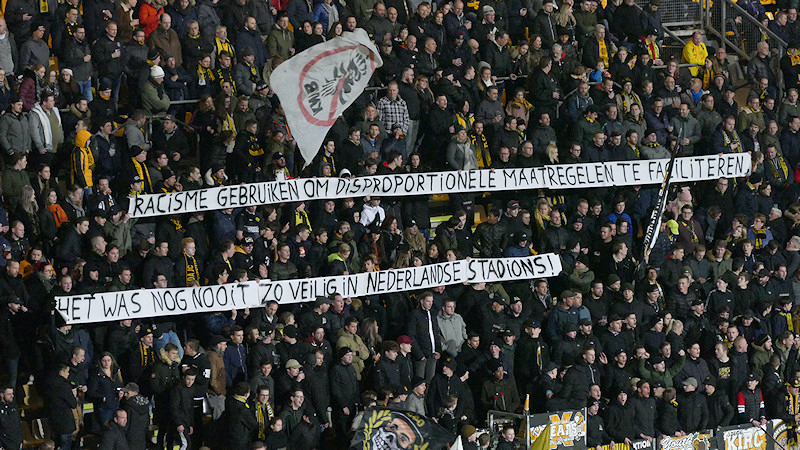 KNVB
RACISME GEBRUIKEN OM DISPROPORTIONELE MAATREGELEN TE FACILITEREN
HET WAS NOG NOOIT ZO VEILIG IN NEDERLANDSE STADIONS!
KIRC